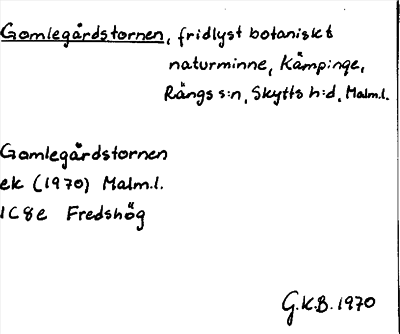 Gamlegårdstornen, fridlyst botaniskt
naturminne, Kämpinge,
Rängs s:n, Skytts h:d, Malm.l.
Gamlegårdstornen
ek (1970) Malm.l.
1C8e Fredshög
G.K.B. 1970